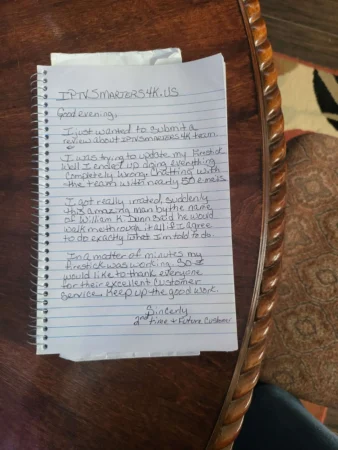 IPTVSMARTERS4K.US
Good evening,
I just wanted to submit a
review about IPTVSMARTERS4K team.
I was trying to update my firestick
Well I ended up doing everything
completely wrong. Chatting with
the team with nearly 50 emails
I got really irrated, suddenly
this amazing man by the name
of William K. Dunn said he would
walk me through it all if I agree
to do exactly what I'm told to do.
In a matter of minutes my
firestick was working. So I
would like to thank everyone
for their excellent customer
Service. Keep up the good work.
Sincerly
2nd time + Future Customer